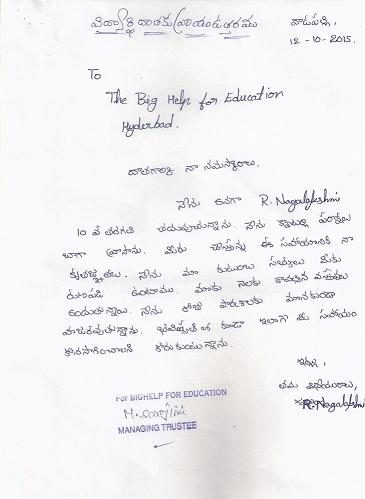 విద్యార్థి దాతకు వ్రాయు ఉత్తరము
వాడపల్లి,
12-10-2015.
To
The Big Help for Education
Hyderbad.
దాతగార్కి నా నమస్కారాలు.
నేను అనగా R. Nagalakshmi
10 వ తరగతి చదువుచున్నాను. నేను క్వాటర్లి పరీక్షలు
బాగా వ్రాసాను. మీరు చేస్తున్న ఈ సహాయానికి నా
కృతజ్ఞతలు. నేను మా కుటుంబ సభ్యులు మీకు
రుణపడి ఉంటాము. మాకు నెలకు కావల్సిన వస్తువులు
అందుతున్నాయి. నేను రోజు పాఠశాలకు మానకుండా
హాజరవుతున్నాను. భవిష్యత్ లో కూడా ఇలాగే మీ సహాయం
కొనసాగించాలని కోరుకుంటున్నాను.
ఇట్లు,
తమ విధేయురాలు,
R. Nagalakshmi
For BIGHELP FOR EDUCATION
M. Sarojini
MANAGING TRUSTEE